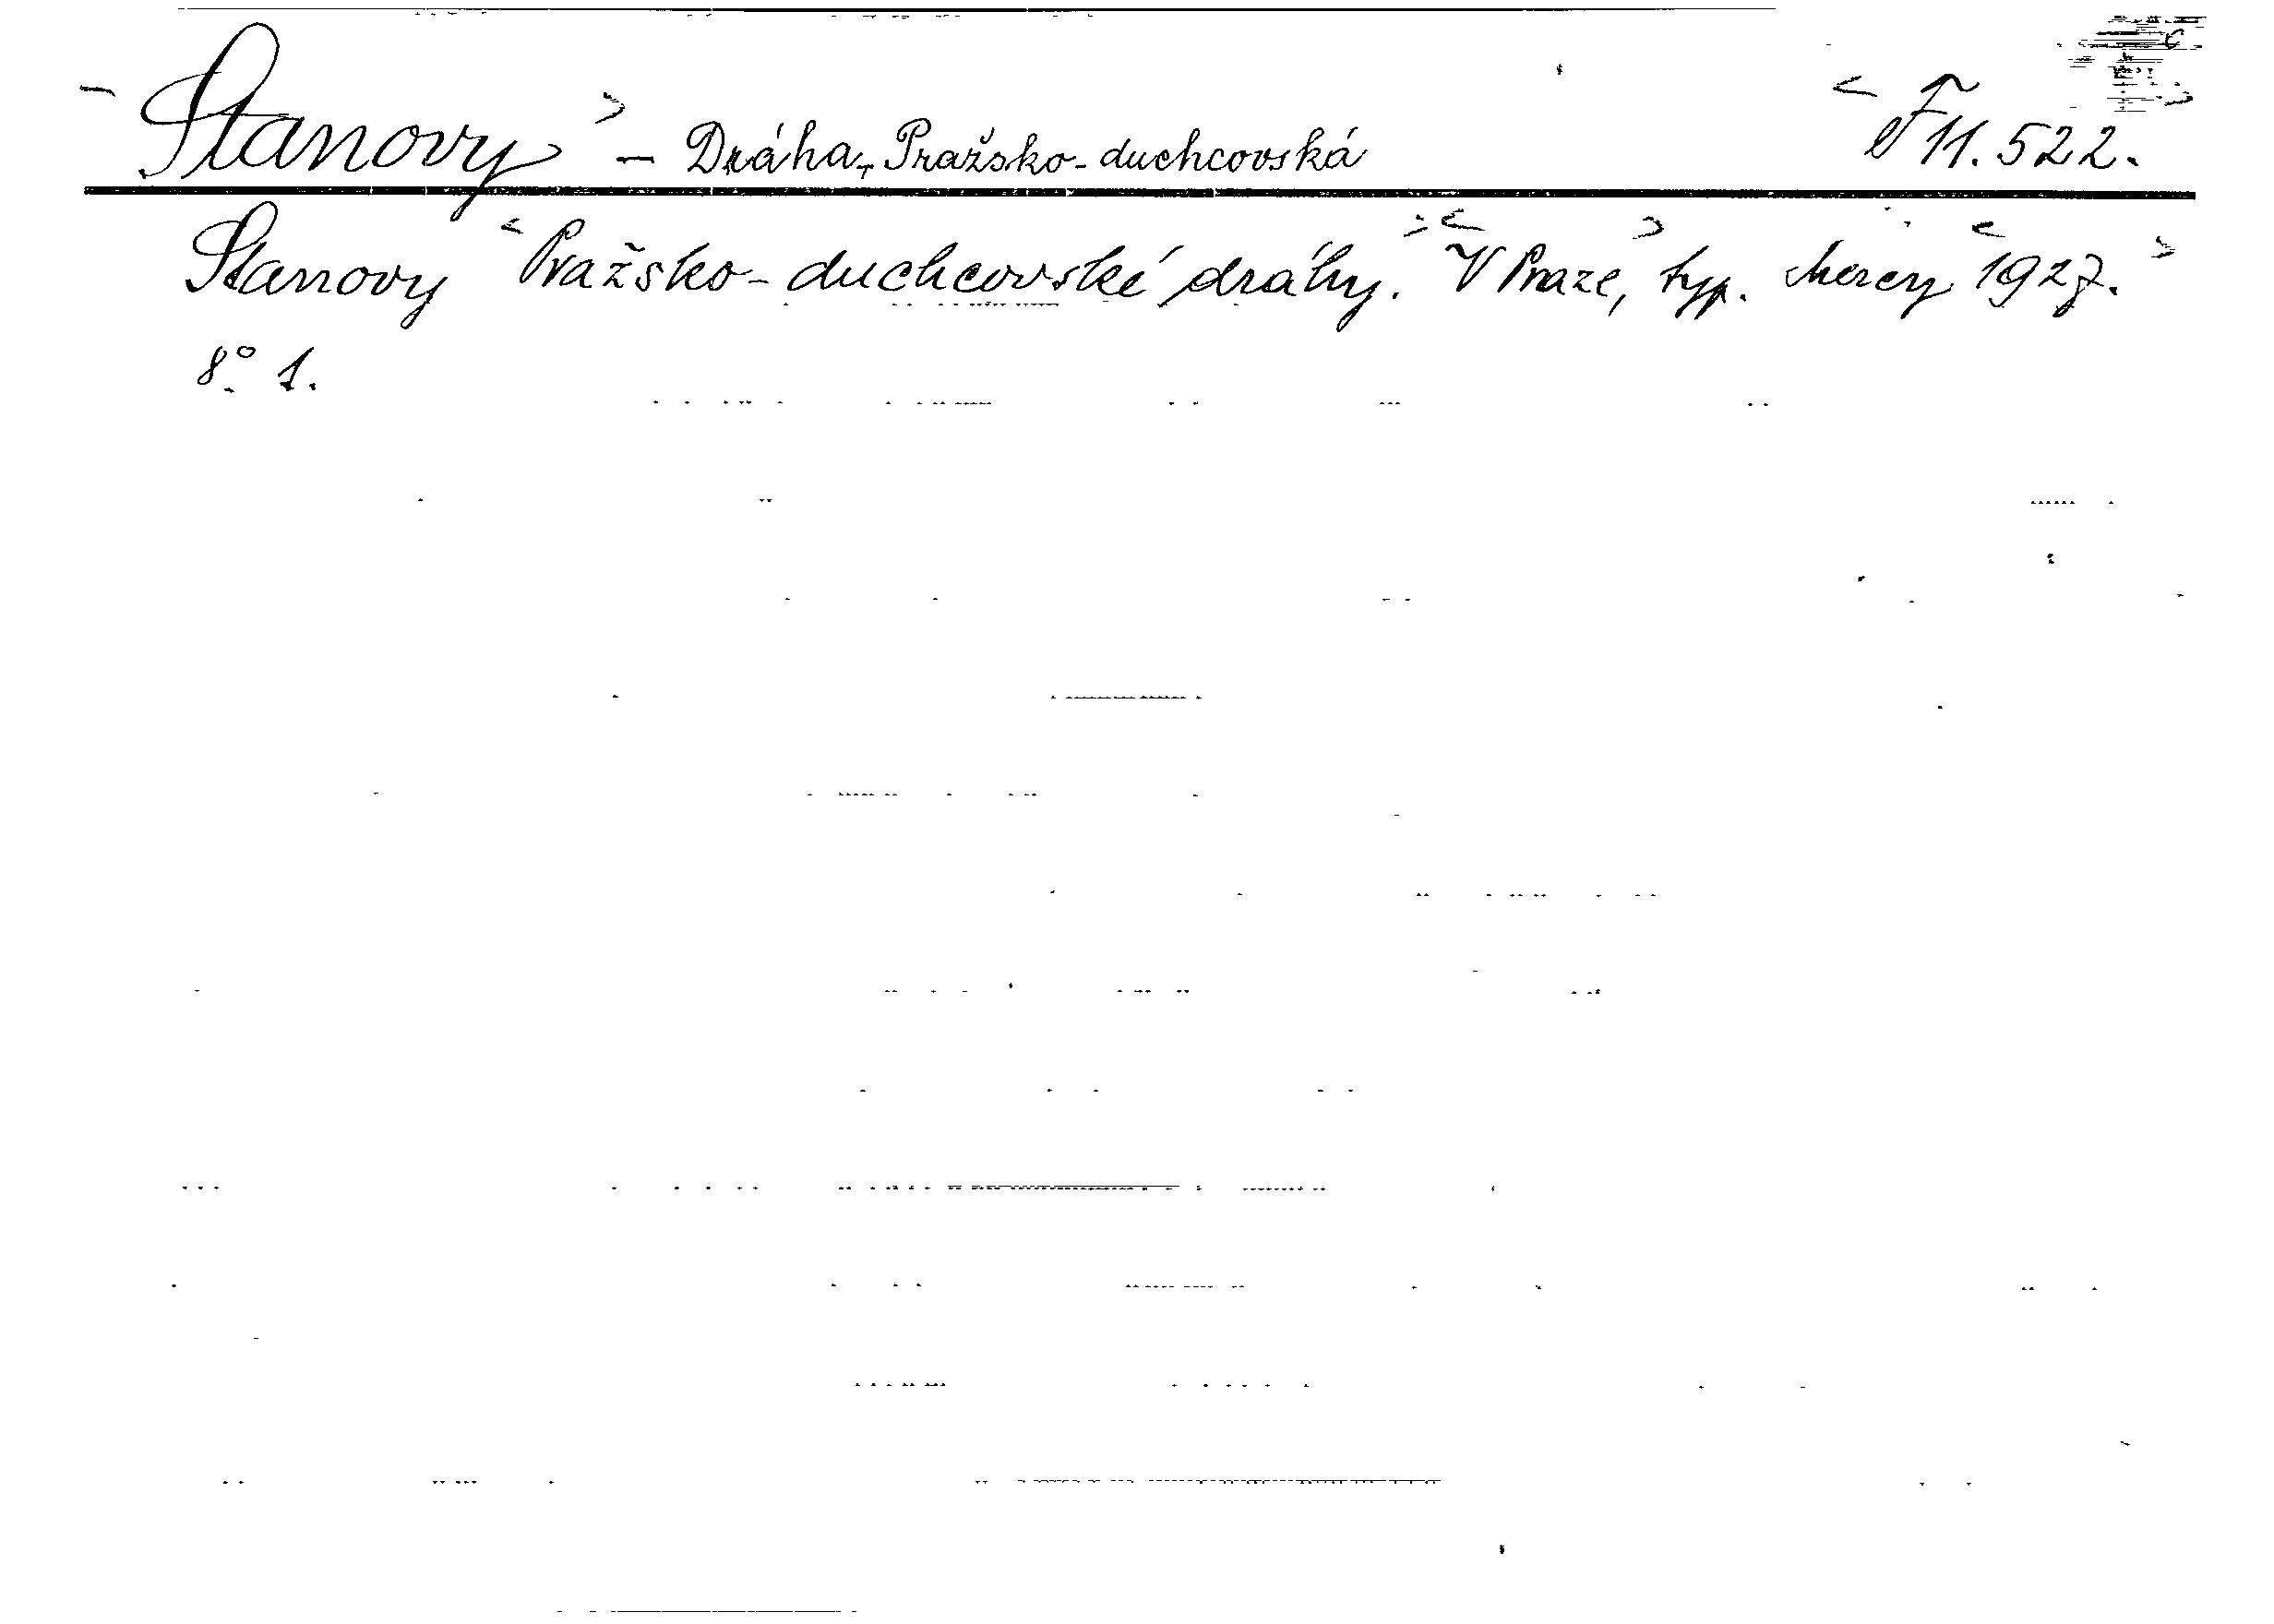 Stanovy - Dráha, Pražsko-duchcovská F 11.522.
Stanovy Pražsko-duchcovské dráhy. V Praze, typ. Mercy 1927.
8° 1.